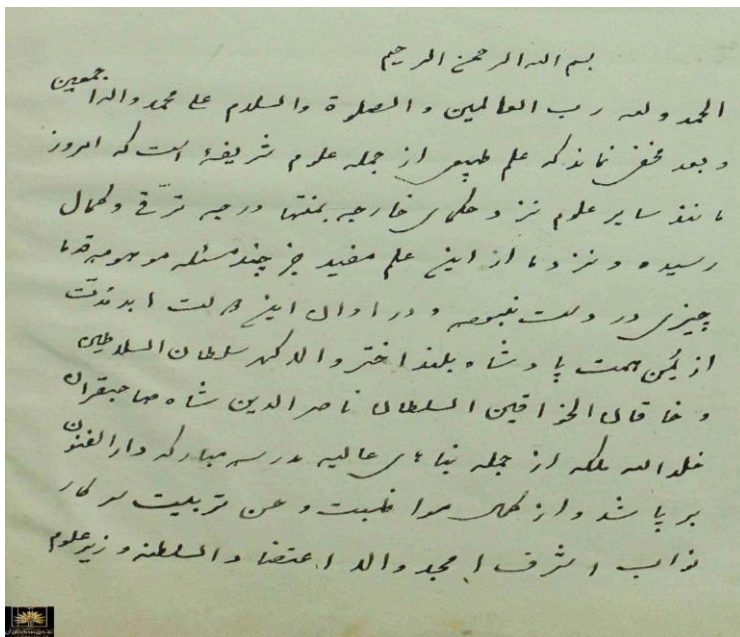 بسم الله الرحمن الرحیم
الحمد لله رب العالمین و الصلوة والسلام علی محمد واله اجمعین
و بعد مخفی نماند که علم طبیعی از جمله علوم شریفهٔ است که امروز
مانند سایر علوم نزد حکمای خارجه بمنتها درجه ترقی و کمال
رسیده و نزد ما از این علم مفید جز چند مسئله موهومه قدما
چیزی در دست نبود و در اوان این دولت ابد مدت
از یُمن همت پادشاه بلند اختر والا گهر سلطان السلاطین
و خاقان الخواقین السلطان ناصر الدین شاه صاحبقران
خلد الله ملکه از جمله بناهای عالیه مدرسه مبارکه دار الفنون
بر پا شد و از کمال مواظبت و حسن تربیت سرکار
نواب اشرف امجد والا اعتضاد السلطنه وزیر علوم